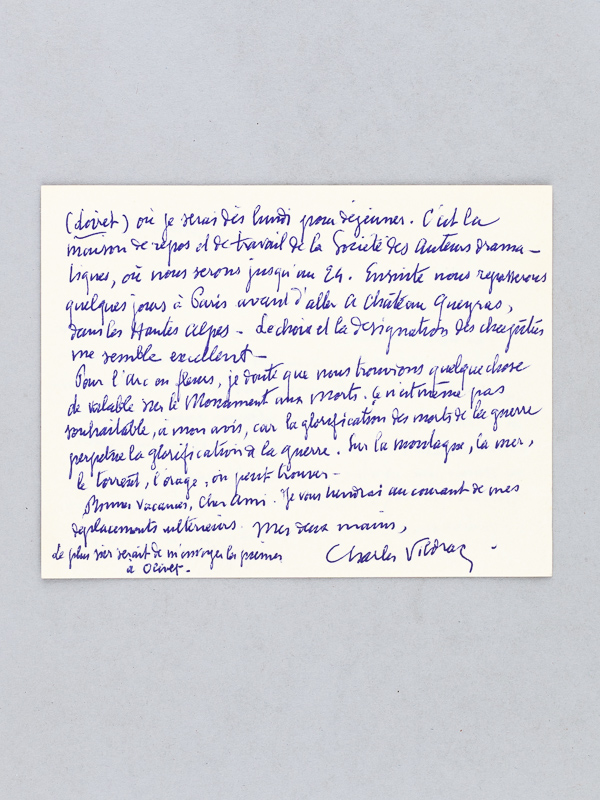 (Loiret) où je serai dès lundi pour déjeuner. C'est la
maison de repos et de travail de la Société des Auteurs drama-
tiques, où nous serons jusqu'au 24. Ensuite nous repasserons
quelques jours à Paris avant d'aller à Château Queyras,
dans les Hautes Alpes - Le choix et la designation des chapitres
me semble excellent -
Pour l'Arc en fleurs, je doute que nous trouvions quelque chose
de valable sur le Monument aux morts. Ce n'est même pas
souhaitable, à mon avis, car la glorification des morts de la guerre
perpétue la glorification de la guerre. Sur la montagne, la mer,
le torrent, l'orage, on peut trouver -
Bonnes vacances, cher ami. Je vous tiendrai au courant de mes
déplacements ultérieurs. Mes deux mains,
Charles Vildrac -
Le plus sûr serait de m'envoyer les poèmes
à Olivet -